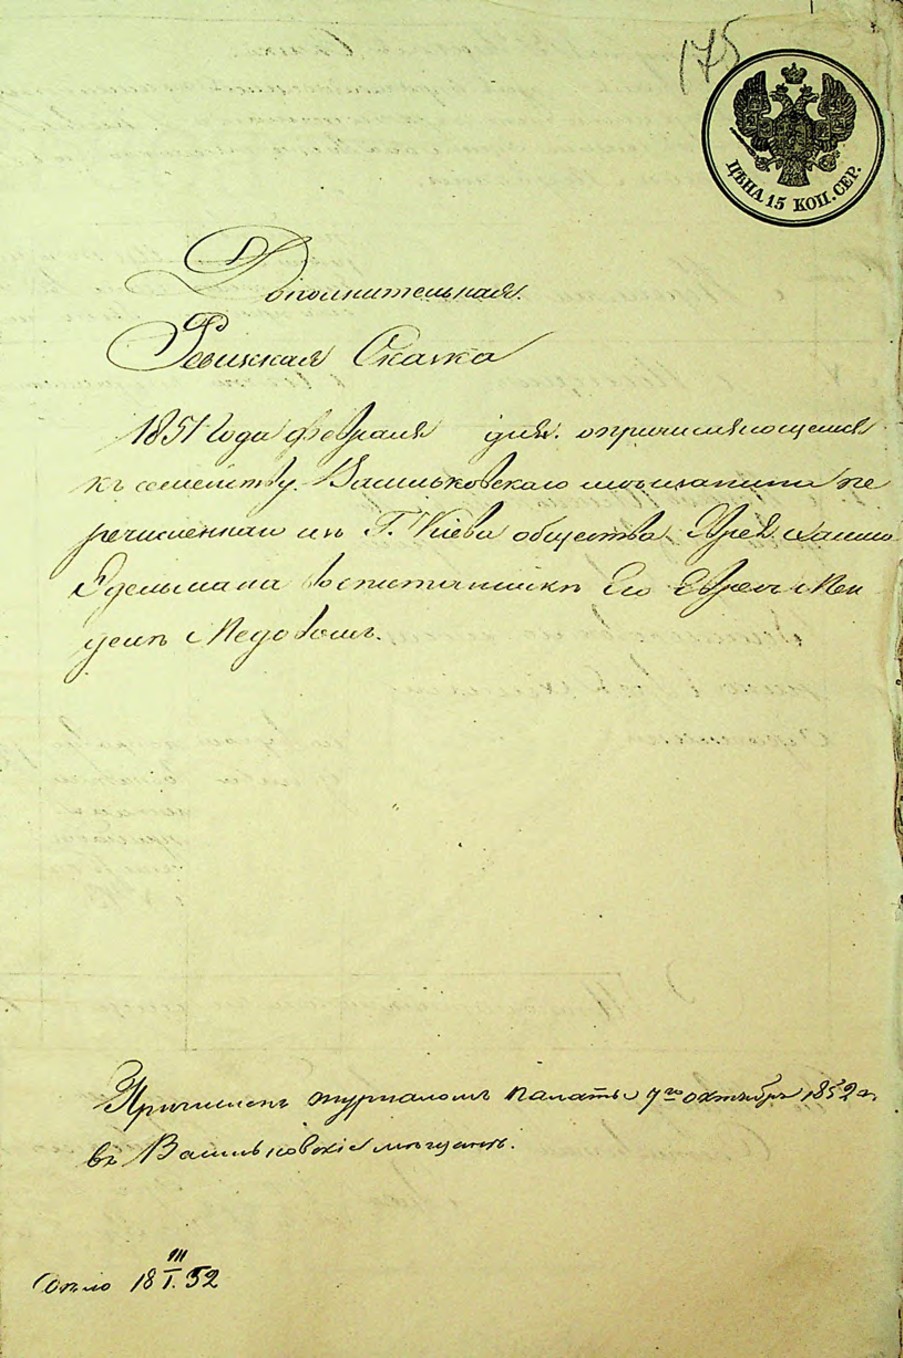 175
ЦѢНА 15 КОП. СЕР.
Дополнительная
Ревизкая Скаска
1851 года февраля дня. о причисляющемся
къ семейству Васильковскаго мѣщанина пе
речисленнаи изъ Г. Кіева общества Еврея
Едельмана воспитанникъ Его Еврей Мен
дель Медовой.
Причисленъ журналомъ палаты 7го октября 1852 г.
въ Васильковскіе мѣщане.
18 III/I. 52